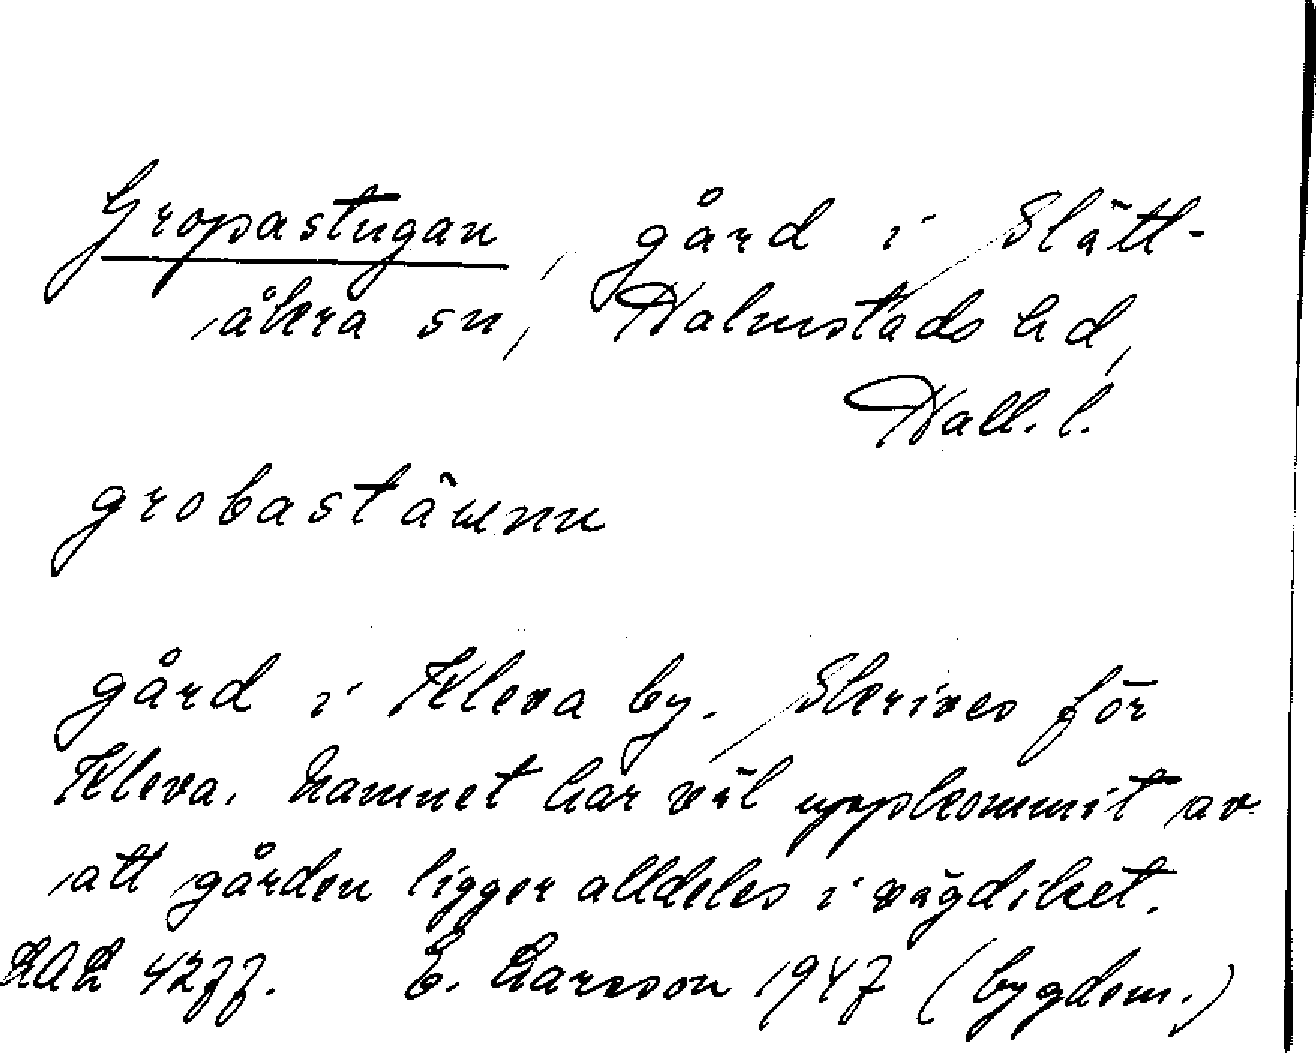 Gropastugan, gård i Slätt-
åkra sn, Halmstads hd,
Hall. l.
gård i Kleva by. Skrives för
Kleva. Namnet har väl uppkommit av
att gården ligger alldeles i vägdiket.
4277. E. Larsson 1947 (bygdem.)